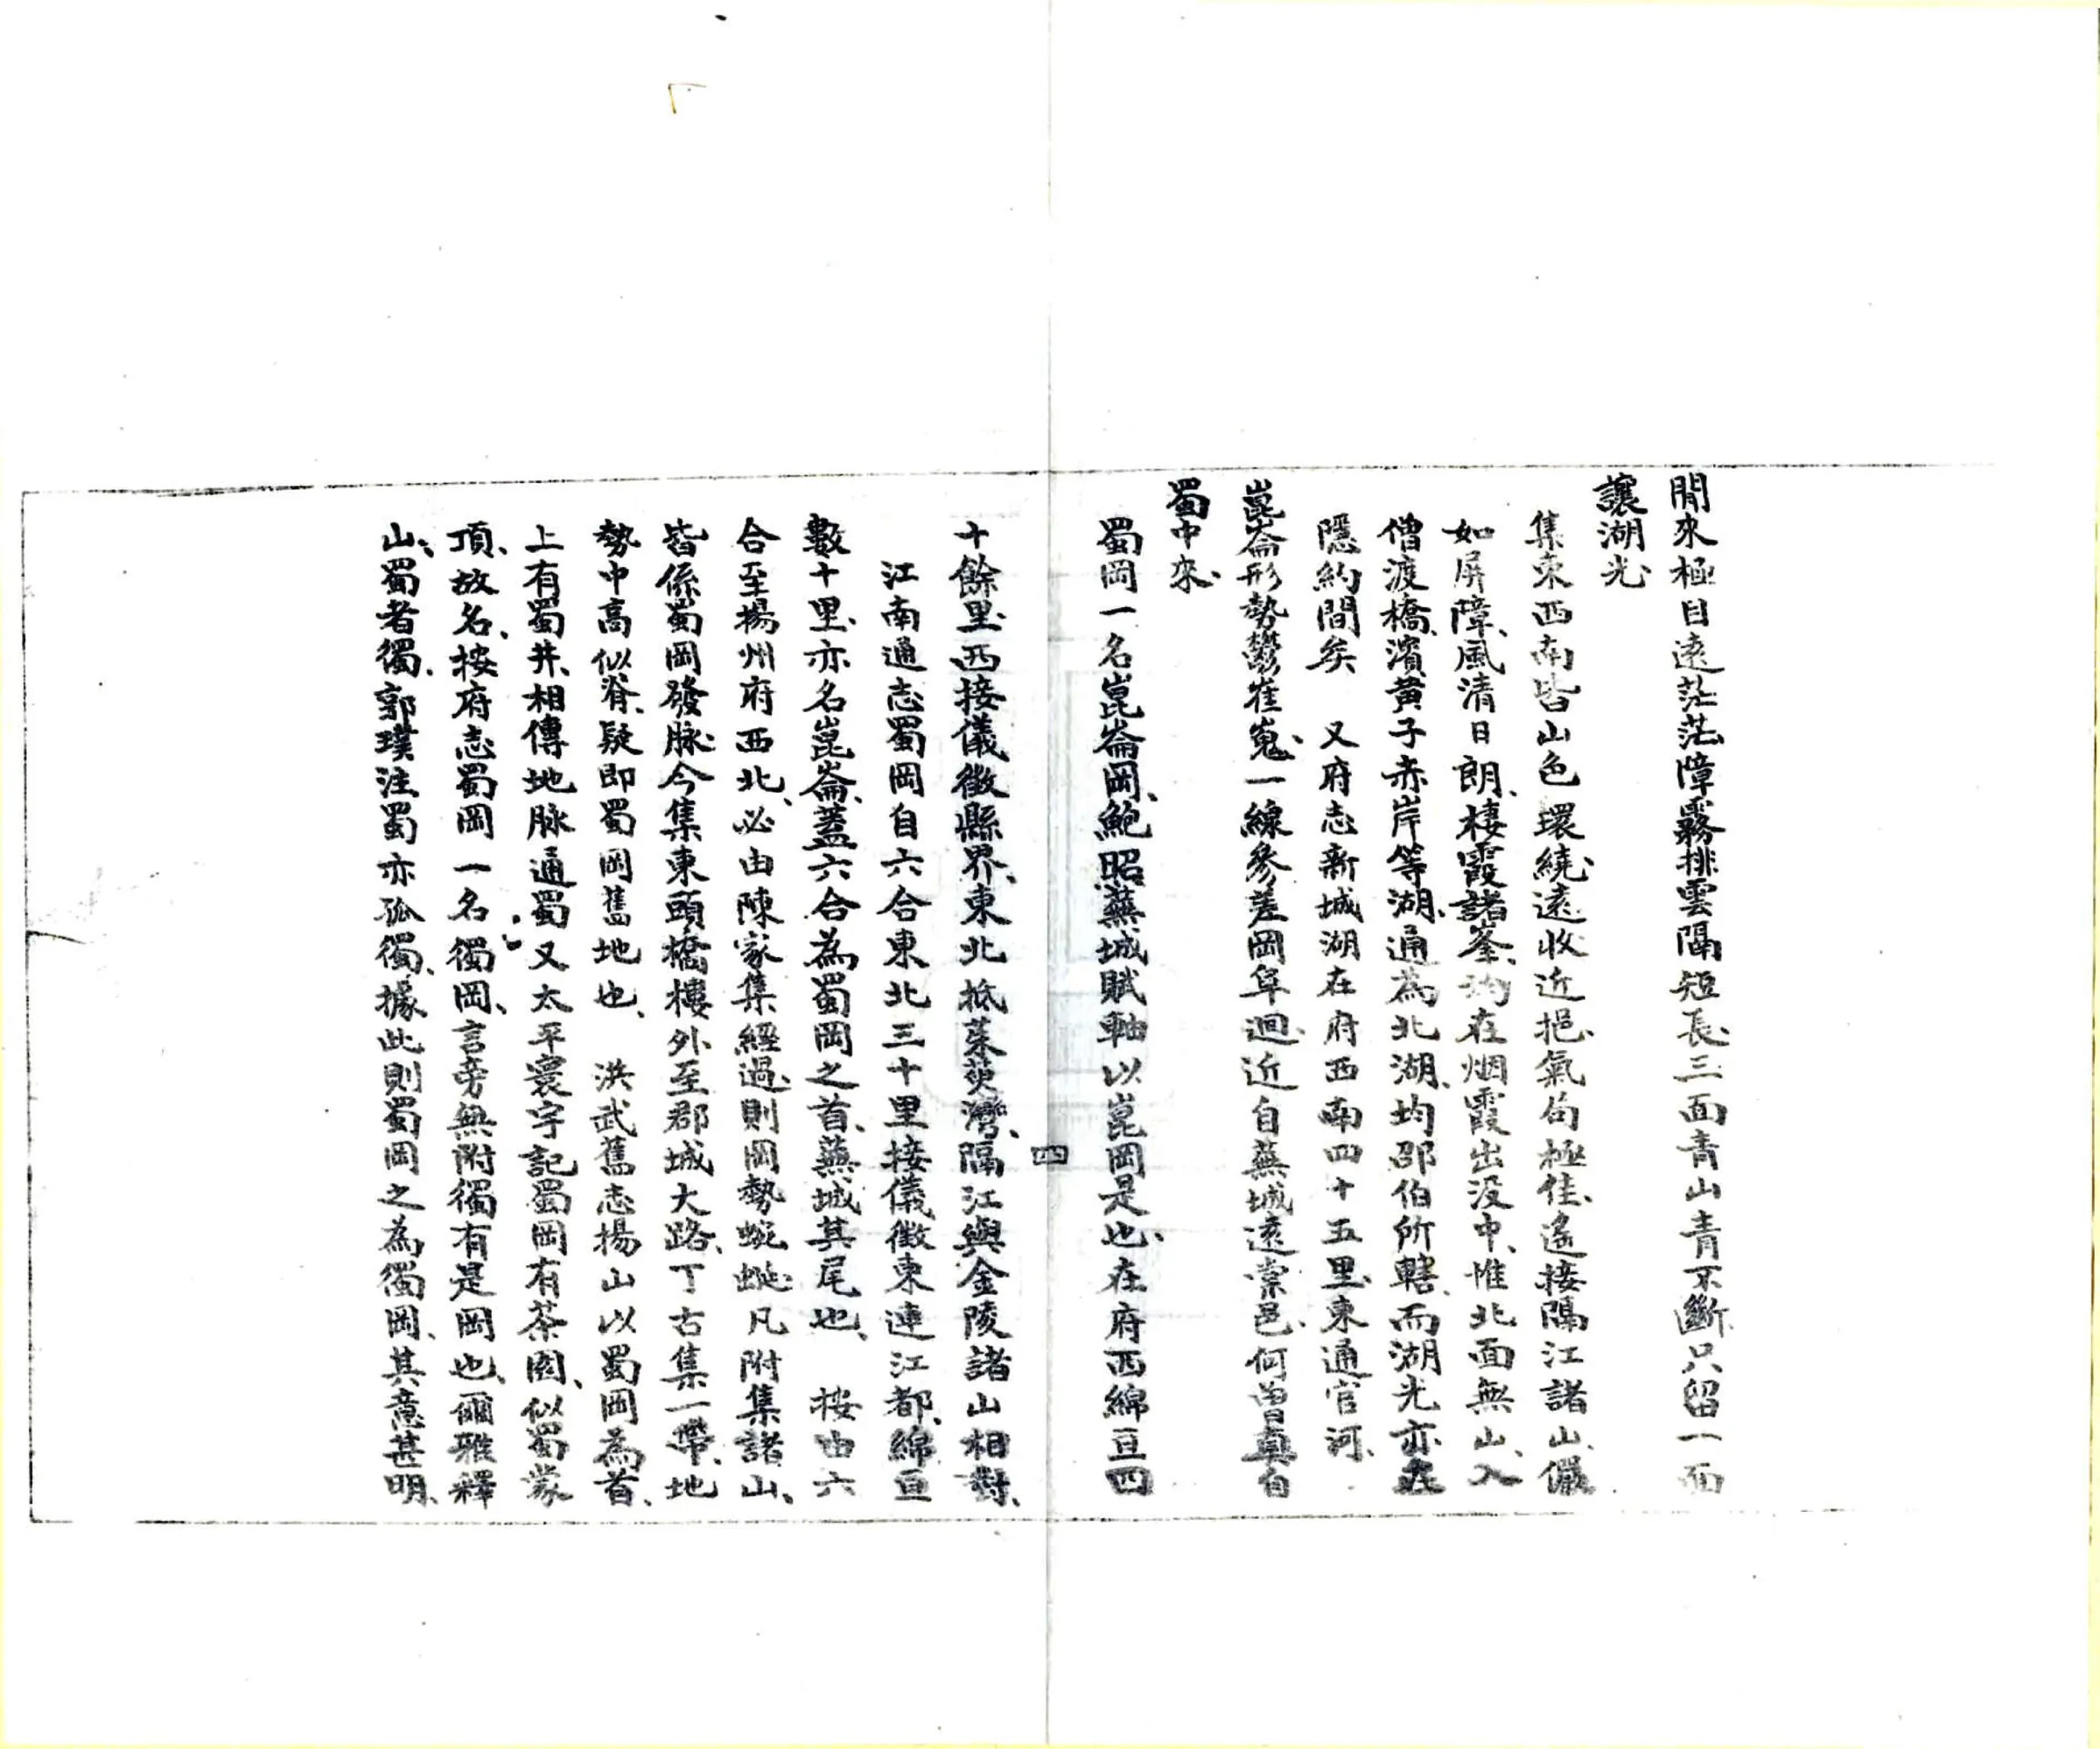 閒來極目遠茫茫障霧排雲隔短長三面青山青不斷只留一面
讓湖光
集東西南皆山色環繞遠收近挹氣局極佳遙接隔江諸山儼
如屏障風清日朗棲霞諸峯均在烟霞出没中惟北面無山入
僧渡橋濱黄子赤岸等湖通為北湖均邵伯所轄而湖光亦在
隱約間矣 又府志新城湖在府西南四十五里東通官河
崑崙形勢鬱崔嵬一線參差岡阜迴近自蕪城遠棠邑何曾真自
蜀中來
蜀岡一名崑崙岡鮑昭蕪城賦軸以崑岡是也在府西綿亘四
四
十餘里西接儀徵縣界東北抵茱萸灣隔江與金陵諸山相對
江南通志蜀岡自六合東北三十里接儀徵東連江都綿亘
數十里亦名崑崙蓋六合為蜀岡之首蕪城其尾也 按由六
合至揚州府西北必由陳家集經過則岡勢蜿蜒凡附集諸山
皆係蜀岡發脉今集東頭橋樓外至郡城大路丁古集一帶地
勢中高似脊疑即蜀岡舊地也 洪武舊志揚山以蜀岡為首
上有蜀井相傳地脉通蜀又太平寰宇記蜀岡有茶園似蜀蒙
頂故名按府志蜀岡一名獨岡言旁無附獨有是岡也爾雅釋
山蜀者獨郭璞注蜀亦孤獨據此則蜀岡之為獨岡其意甚明